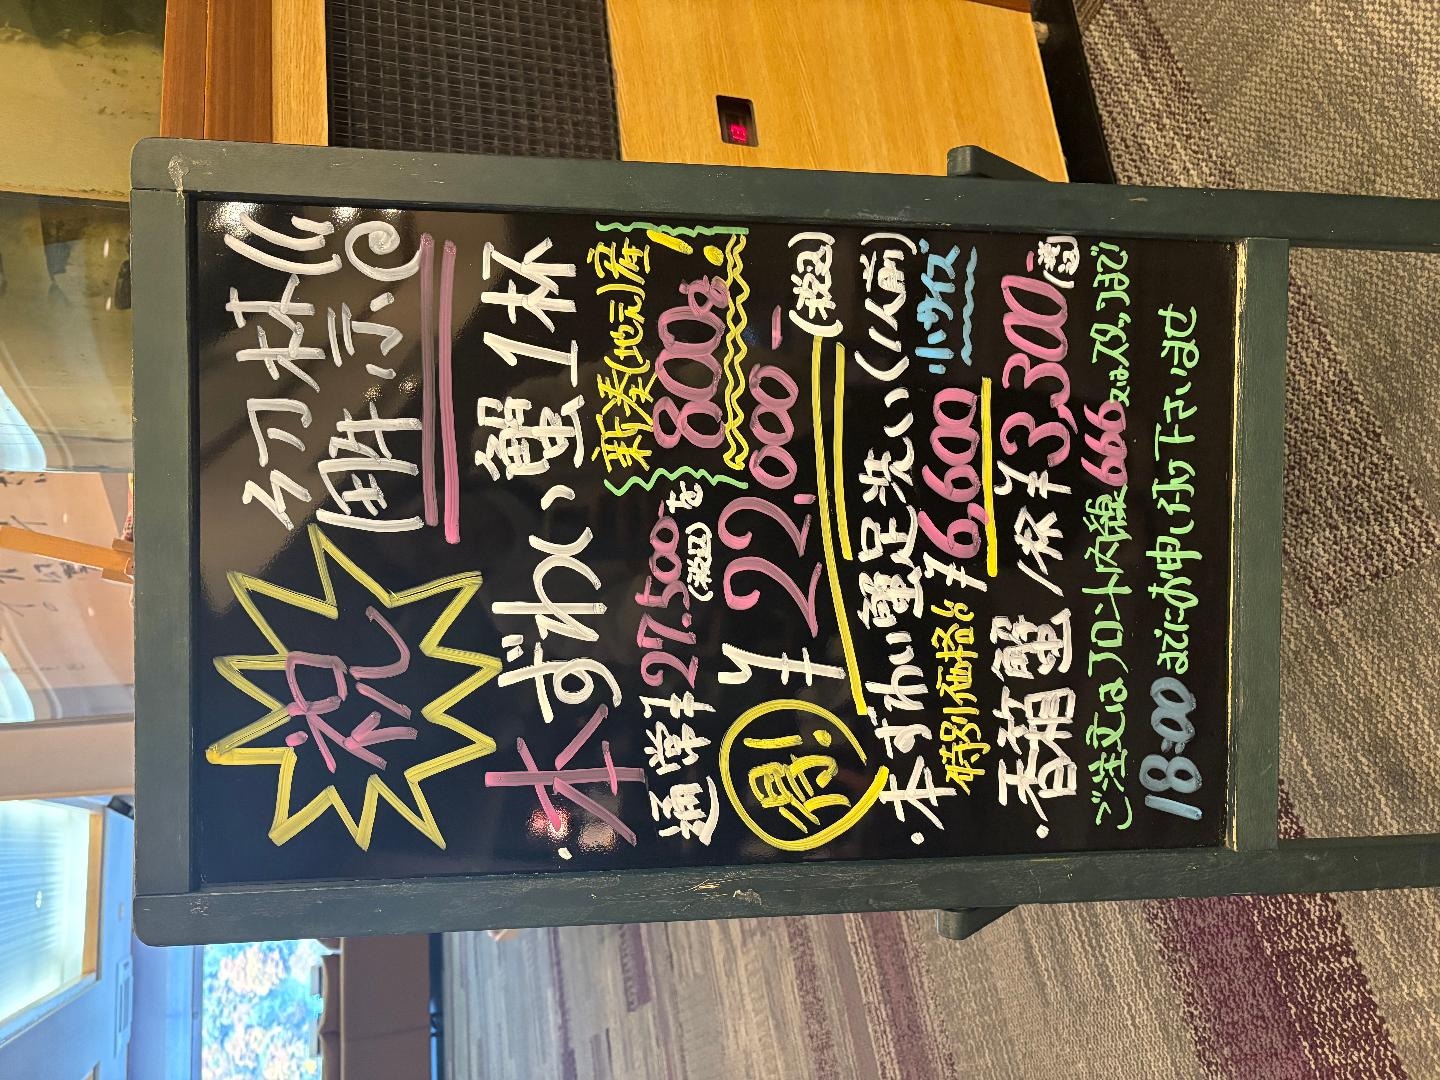 祝
初水揚げ
解禁
・本ずわい蟹1杯
通常¥27,500(税込)を
新湊(地元)産
800g!
得!
¥22,000-
(税込)
・本ずわい蟹足洗い(1人前)
特別価格 ¥6,600 小サイズ
・香箱蟹 1杯 ¥3,300-(税込)
ご注文はフロント内線666又はスタッフまで
18:00までにお申し付け下さいませ